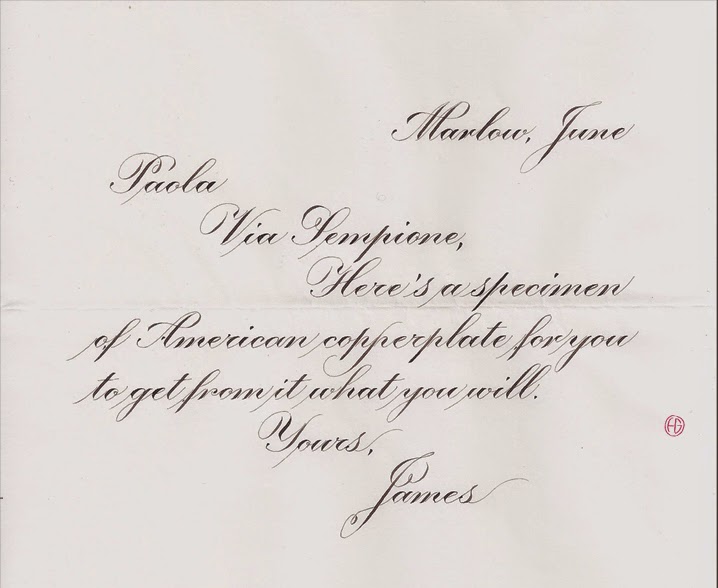 Marlow, June
Paola
Via Sempione,
Here's a specimen
of American copperplate for you
to get from it what you will.
Yours,
James